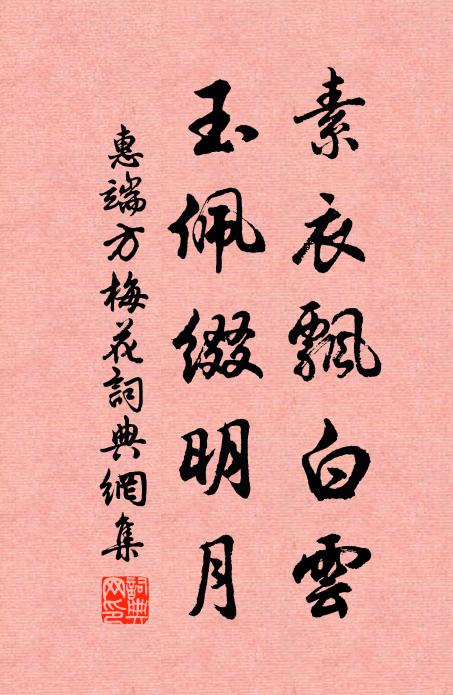 素衣飄白雲
玉佩綴明月
惠端方梅花詞典網集
詞典網印